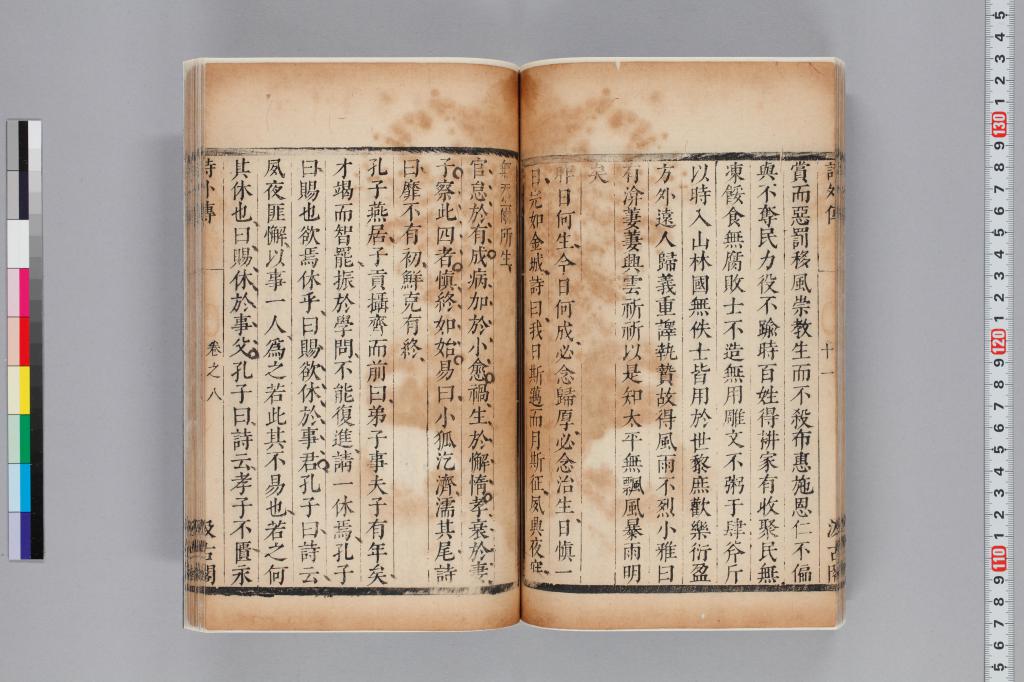 詩外傳
十一
汲古閣
賞而惡罰移風崇教生而不殺布惠施恩仁不偏
與不奪民力役不踰時百姓得耕家有收聚民無
凍餒食無腐敗士不造無用雕文不粥于肆斧斤
以時入山林國無佚士皆用於世黎庶歡樂衍盈
方外遠人歸義重譯執贄故得風雨不烈小雅曰
有渰萋萋興雲祈祈以是知太平無飄風暴雨明
矣
昨日何生今日何成必念歸厚必念治生日慎一
日完如金城詩曰我日斯邁而月斯征夙興夜寐
無忝爾所生
官怠於有成病加於小愈禍生於懈惰孝衰於妻
子察此四者慎終如始易曰小狐汔濟濡其尾詩
曰靡不有初鮮克有終
孔子燕居子貢攝齊而前曰弟子事夫子有年矣
才竭而智罷振於學問不能復進請一休焉孔子
曰賜也欲焉休乎曰賜欲休於事君孔子曰詩云
夙夜匪懈以事一人為之若此其不易也若之何
其休也曰賜休於事父孔子曰詩云孝子不匱永
詩外傳
卷之八
汲古閣